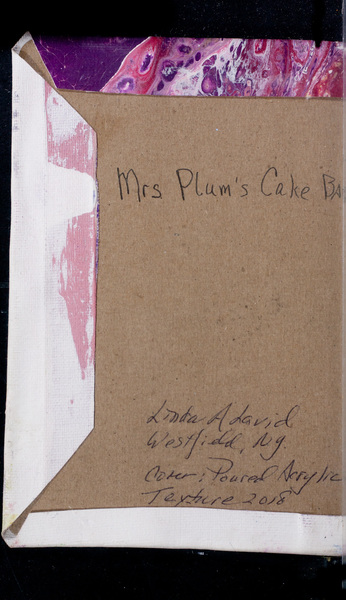 Mrs Plum's Cake BA
Linda A David
Westfield, NJ.
Cover: Poured Acrylic
Texture 2018